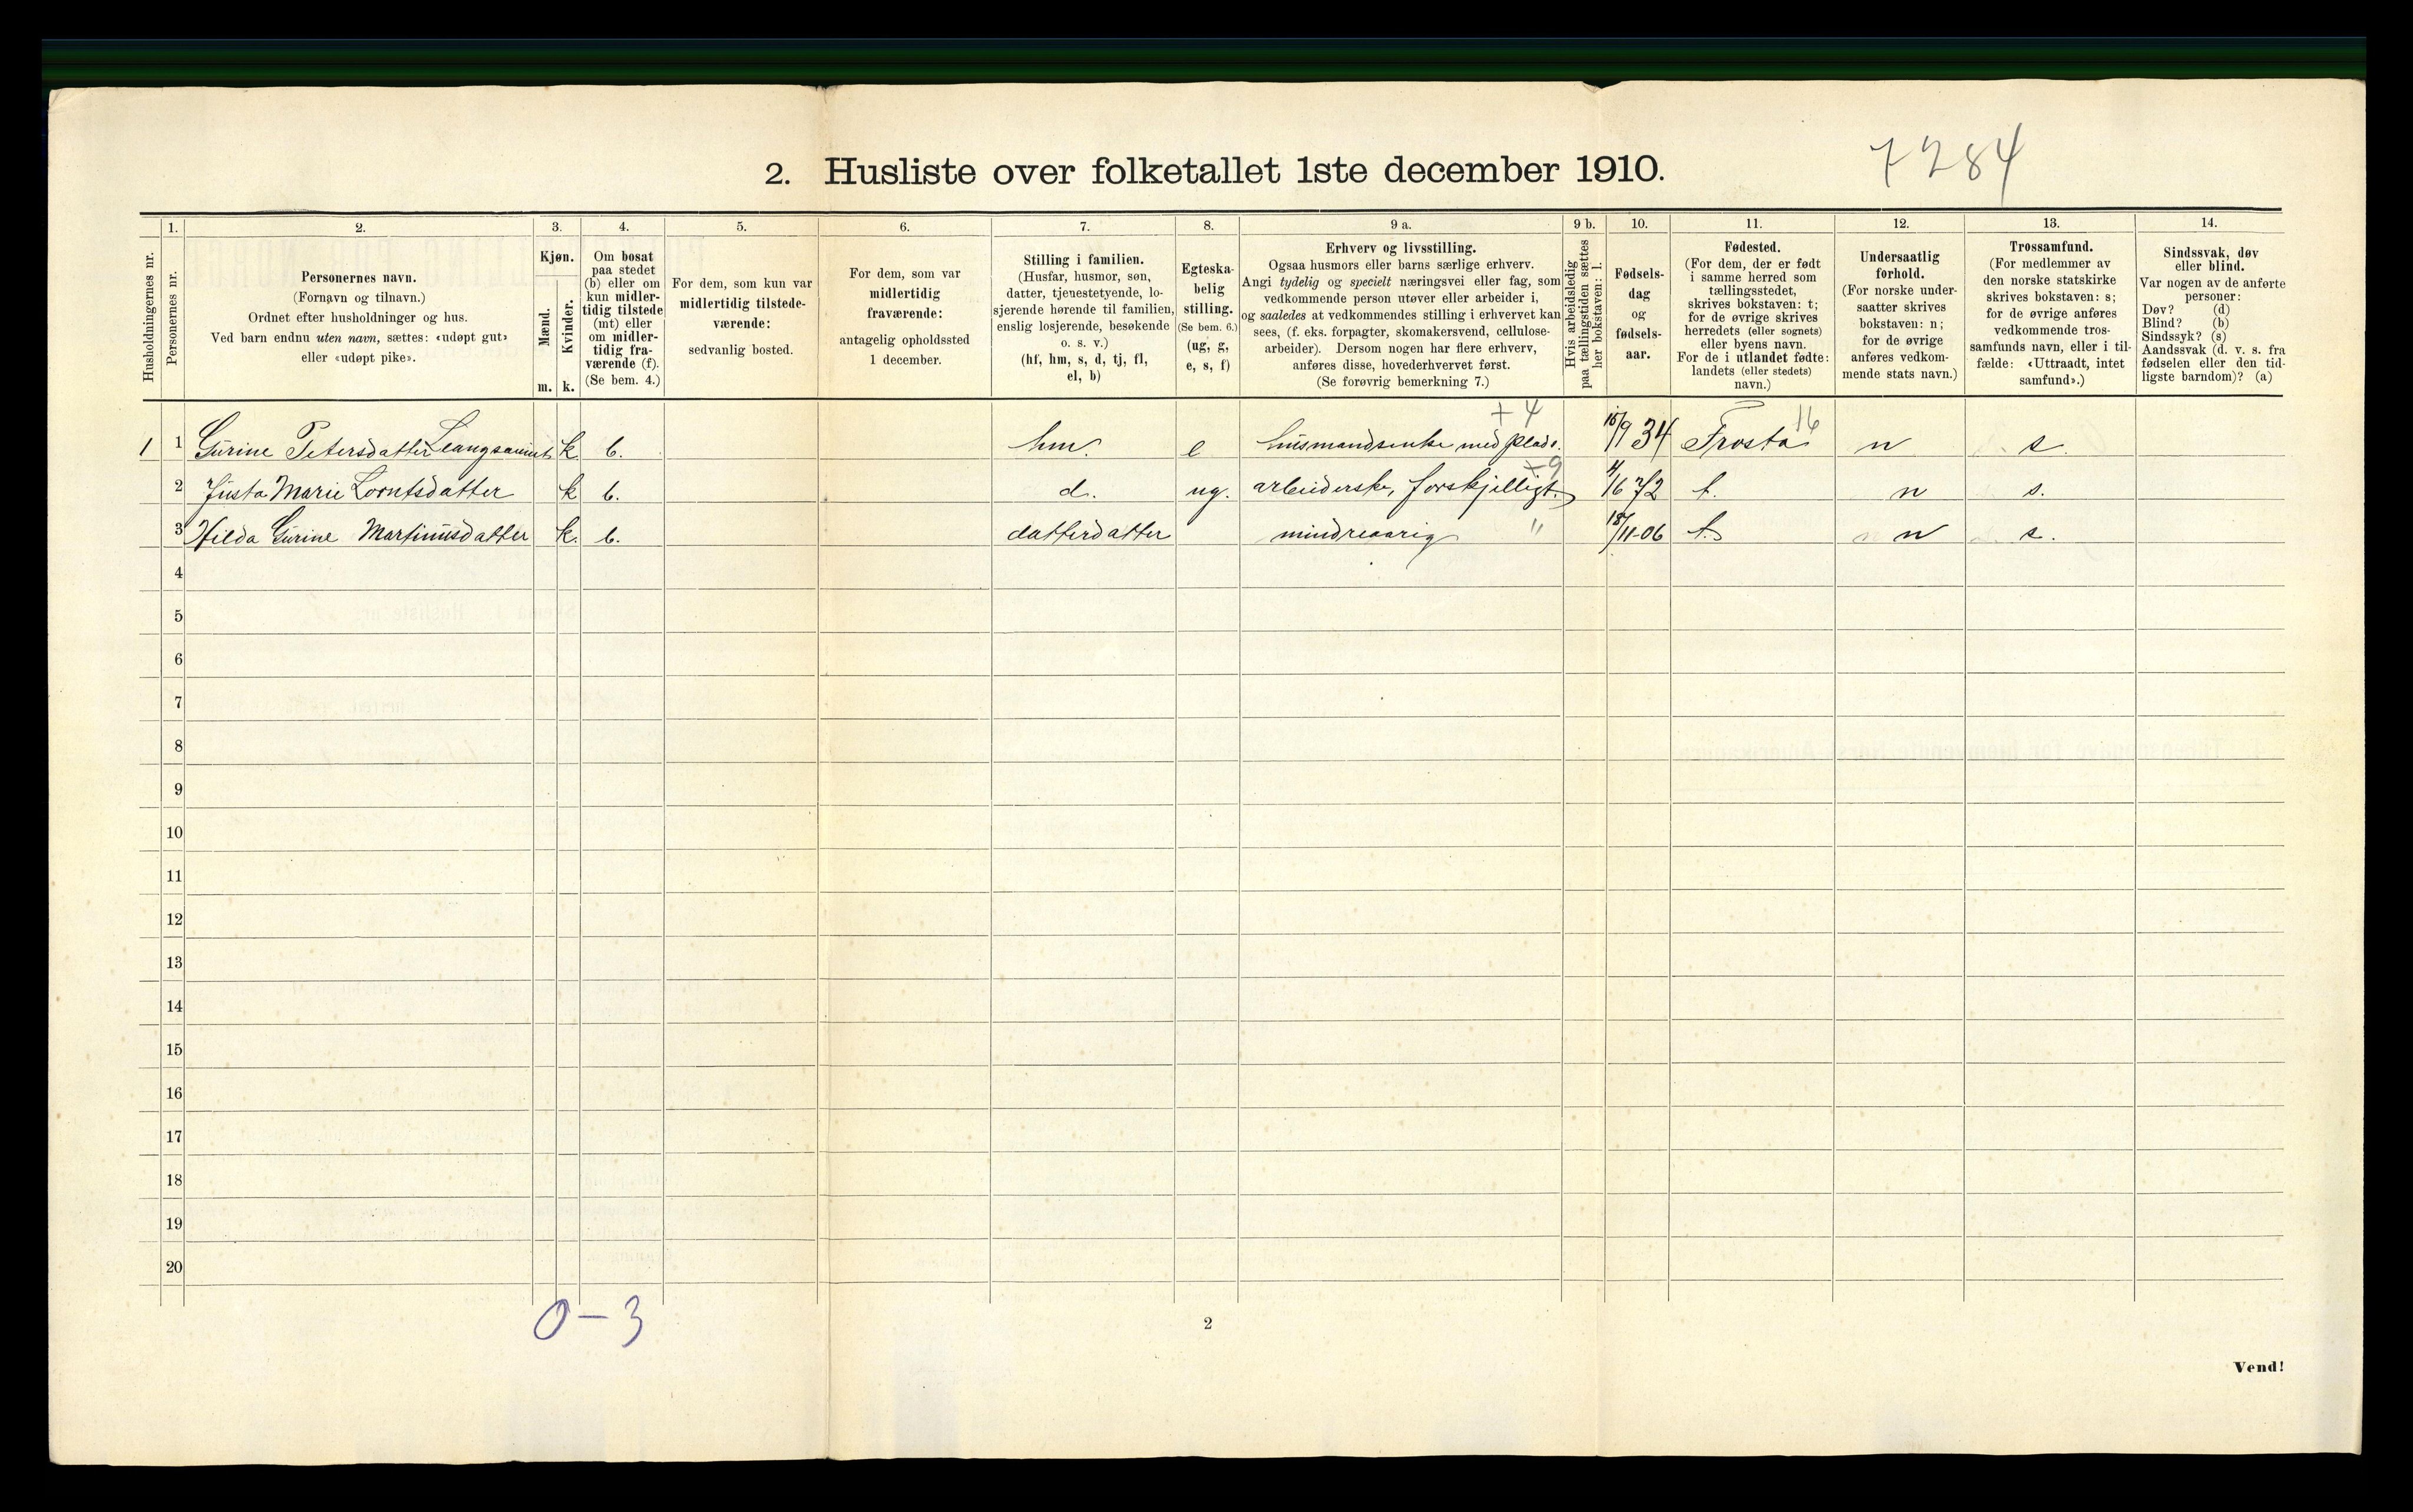 7284
2. Husliste over folketallet 1ste december 1910.
Husholdningernes nr.
1.
Personernes nr.
2.
Personernes navn.
(Fornavn og tilnavn.)
Ordnet efter husholdninger og hus.
Ved barn endnu uten navn, sættes: «udøpt gut»
eller «udøpt pike».
3.
Kjøn.
Mænd.
m.
Kvinder.
k.
4.
Om bosat
paa stedet
(b) eller om
kun midler-
tidig tilstede
(mt) eller
om midler-
tidig fra-
værende (f).
(Se bem. 4.)
5.
For dem, som kun var
midlertidig tilstede-
værende:
sedvanlig bosted.
6.
For dem, som var
midlertidig
fraværende:
antagelig opholdssted
1 december.
7.
Stilling i familien.
(Husfar, husmor, søn,
datter, tjenestetyende, lo-
sjerende hørende til familien,
enslig losjerende, besøkende
o. s. v.)
(hf, hm, s, d, tj, fl,
el, b)
8.
Egteska-
belig
stilling.
(Se bem. 6.)
(ug, g,
e, s, f)
9 a.
Erhverv og livsstilling.
Ogsaa husmors eller barns særlige erhverv.
Angi tydelig og specielt næringsvei eller fag, som
vedkommende person utøver eller arbeider i,
og saaledes at vedkommendes stilling i erhvervet kan
sees, (f. eks. forpagter, skomakersvend, cellulose-
arbeider). Dersom nogen har flere erhverv,
anføres disse, hovederhvervet først.
(Se forøvrig bemerkning 7.)
9 b.
Hvis arbeidsledig
paa tællingstiden sættes
her bokstaven: l.
10.
Fødsels-
dag
og
fødsels-
aar.
11.
Fødested.
(For dem, der er født
i samme herred som
tællingsstedet,
skrives bokstaven: t;
for de øvrige skrives
herredets (eller sognets)
eller byens navn.
For de i utlandet fødte:
landets (eller stedets)
navn.)
12.
Undersaatlig
forhold.
(For norske under-
saatter skrives
bokstaven: n;
for de øvrige
anføres vedkom-
mende stats navn.)
13.
Trossamfund.
(For medlemmer av
den norske statskirke
skrives bokstaven: s;
for de øvrige anføres
vedkommende tros-
samfunds navn, eller i til-
fælde: «Uttraadt, intet
samfund».)
14.
Sindssvak, døv
eller blind.
Var nogen av de anførte
personer:
Døv? (d)
Blind? (b)
Sindssyk? (s)
Aandssvak (d. v. s. fra
fødselen eller den tid-
ligste barndom)? (a)
+ 4 16
1 1 Gurine Petersdatter k b. hm. e husmandsenke med plads. 15/9 34 Frosta n s.
+9
2 Justa Marie Lorntsdatter k b. d. ug. arbeiderske, forskjelligt. 4/6 72 t. n s.
3 Hilda Gurine Martinusdatter k. b. datterdatter mindreaarig " 18/11-06 t. n s.
4
5
6
7
8
9
10
11
12
13
14
15
16
17
18
19
20
0 – 3
2
Vend!